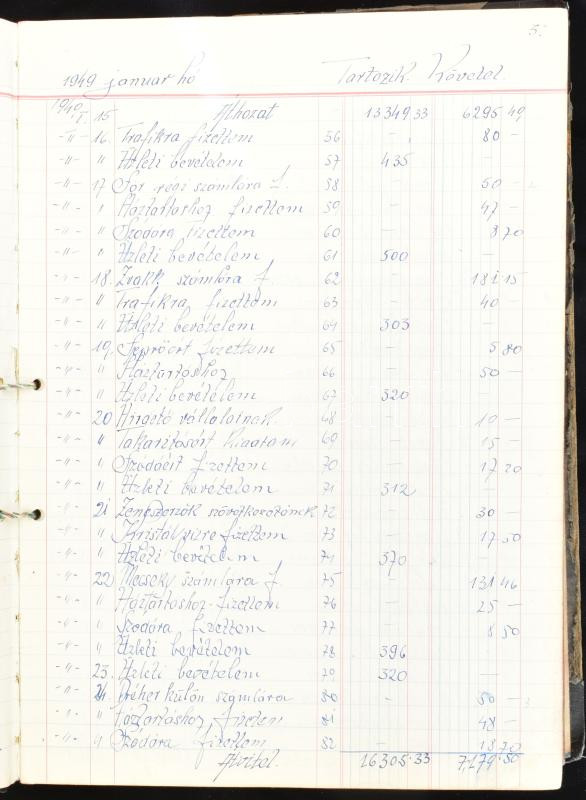 5.
1949 januar hó Tartozik. Követel.
1949 I. 15 Áthozat 13349.33 6295.49
-"- 16. Trafikra fizettem 56 - 80 -
-"- " Üzleti bevételem 57 435 -
-"- 17 számlára 58 - 50 -
-"- " Háztartáshoz fizettem 59 - 47 -
-"- " Szodára fizettem 60 - 8 70
-"- " Üzleti bevételem 61 500 -
-"- 18. számlára f. 62 - 181.15
-"- " Trafikra fizettem 63 - 40 -
-"- " Üzleti bevételem 64 303 -
-"- 19. fizettem 65 - 5 80
-"- " Háztartáshoz 66 - 50 -
-"- " Üzleti bevételem 67 320 -
-"- 20 vállalatnak. 68 - 10 -
-"- " Takaritásért kiadtam 69 - 15 -
-"- " Szodáért fizettem 70 - 17 20
-"- " Üzleti bevételem 71 312
-"- 21 Zeneszerzök szövetkezetének 72 - 30 -
-"- " Kristályvizre fizettem 73 - 17 50
-"- " Üzleti bevételem 74 570 -
-"- 22 Mecseky számlára f. 75 - 131 46
-"- " Háztartáshoz fizettem 76 - 25 -
-"- " Szodára fizettem 77 - 8 50
-"- " Üzleti bevételem 78 396
-"- 23. Üzleti bevételem 79 320 -
-"- 24 külön számlára 80 - 50 -
-"- " fizettem 81 48 -
-"- " Szódára fizettem 82 - 18 70
Átvitel. 16305.33 7,179.50